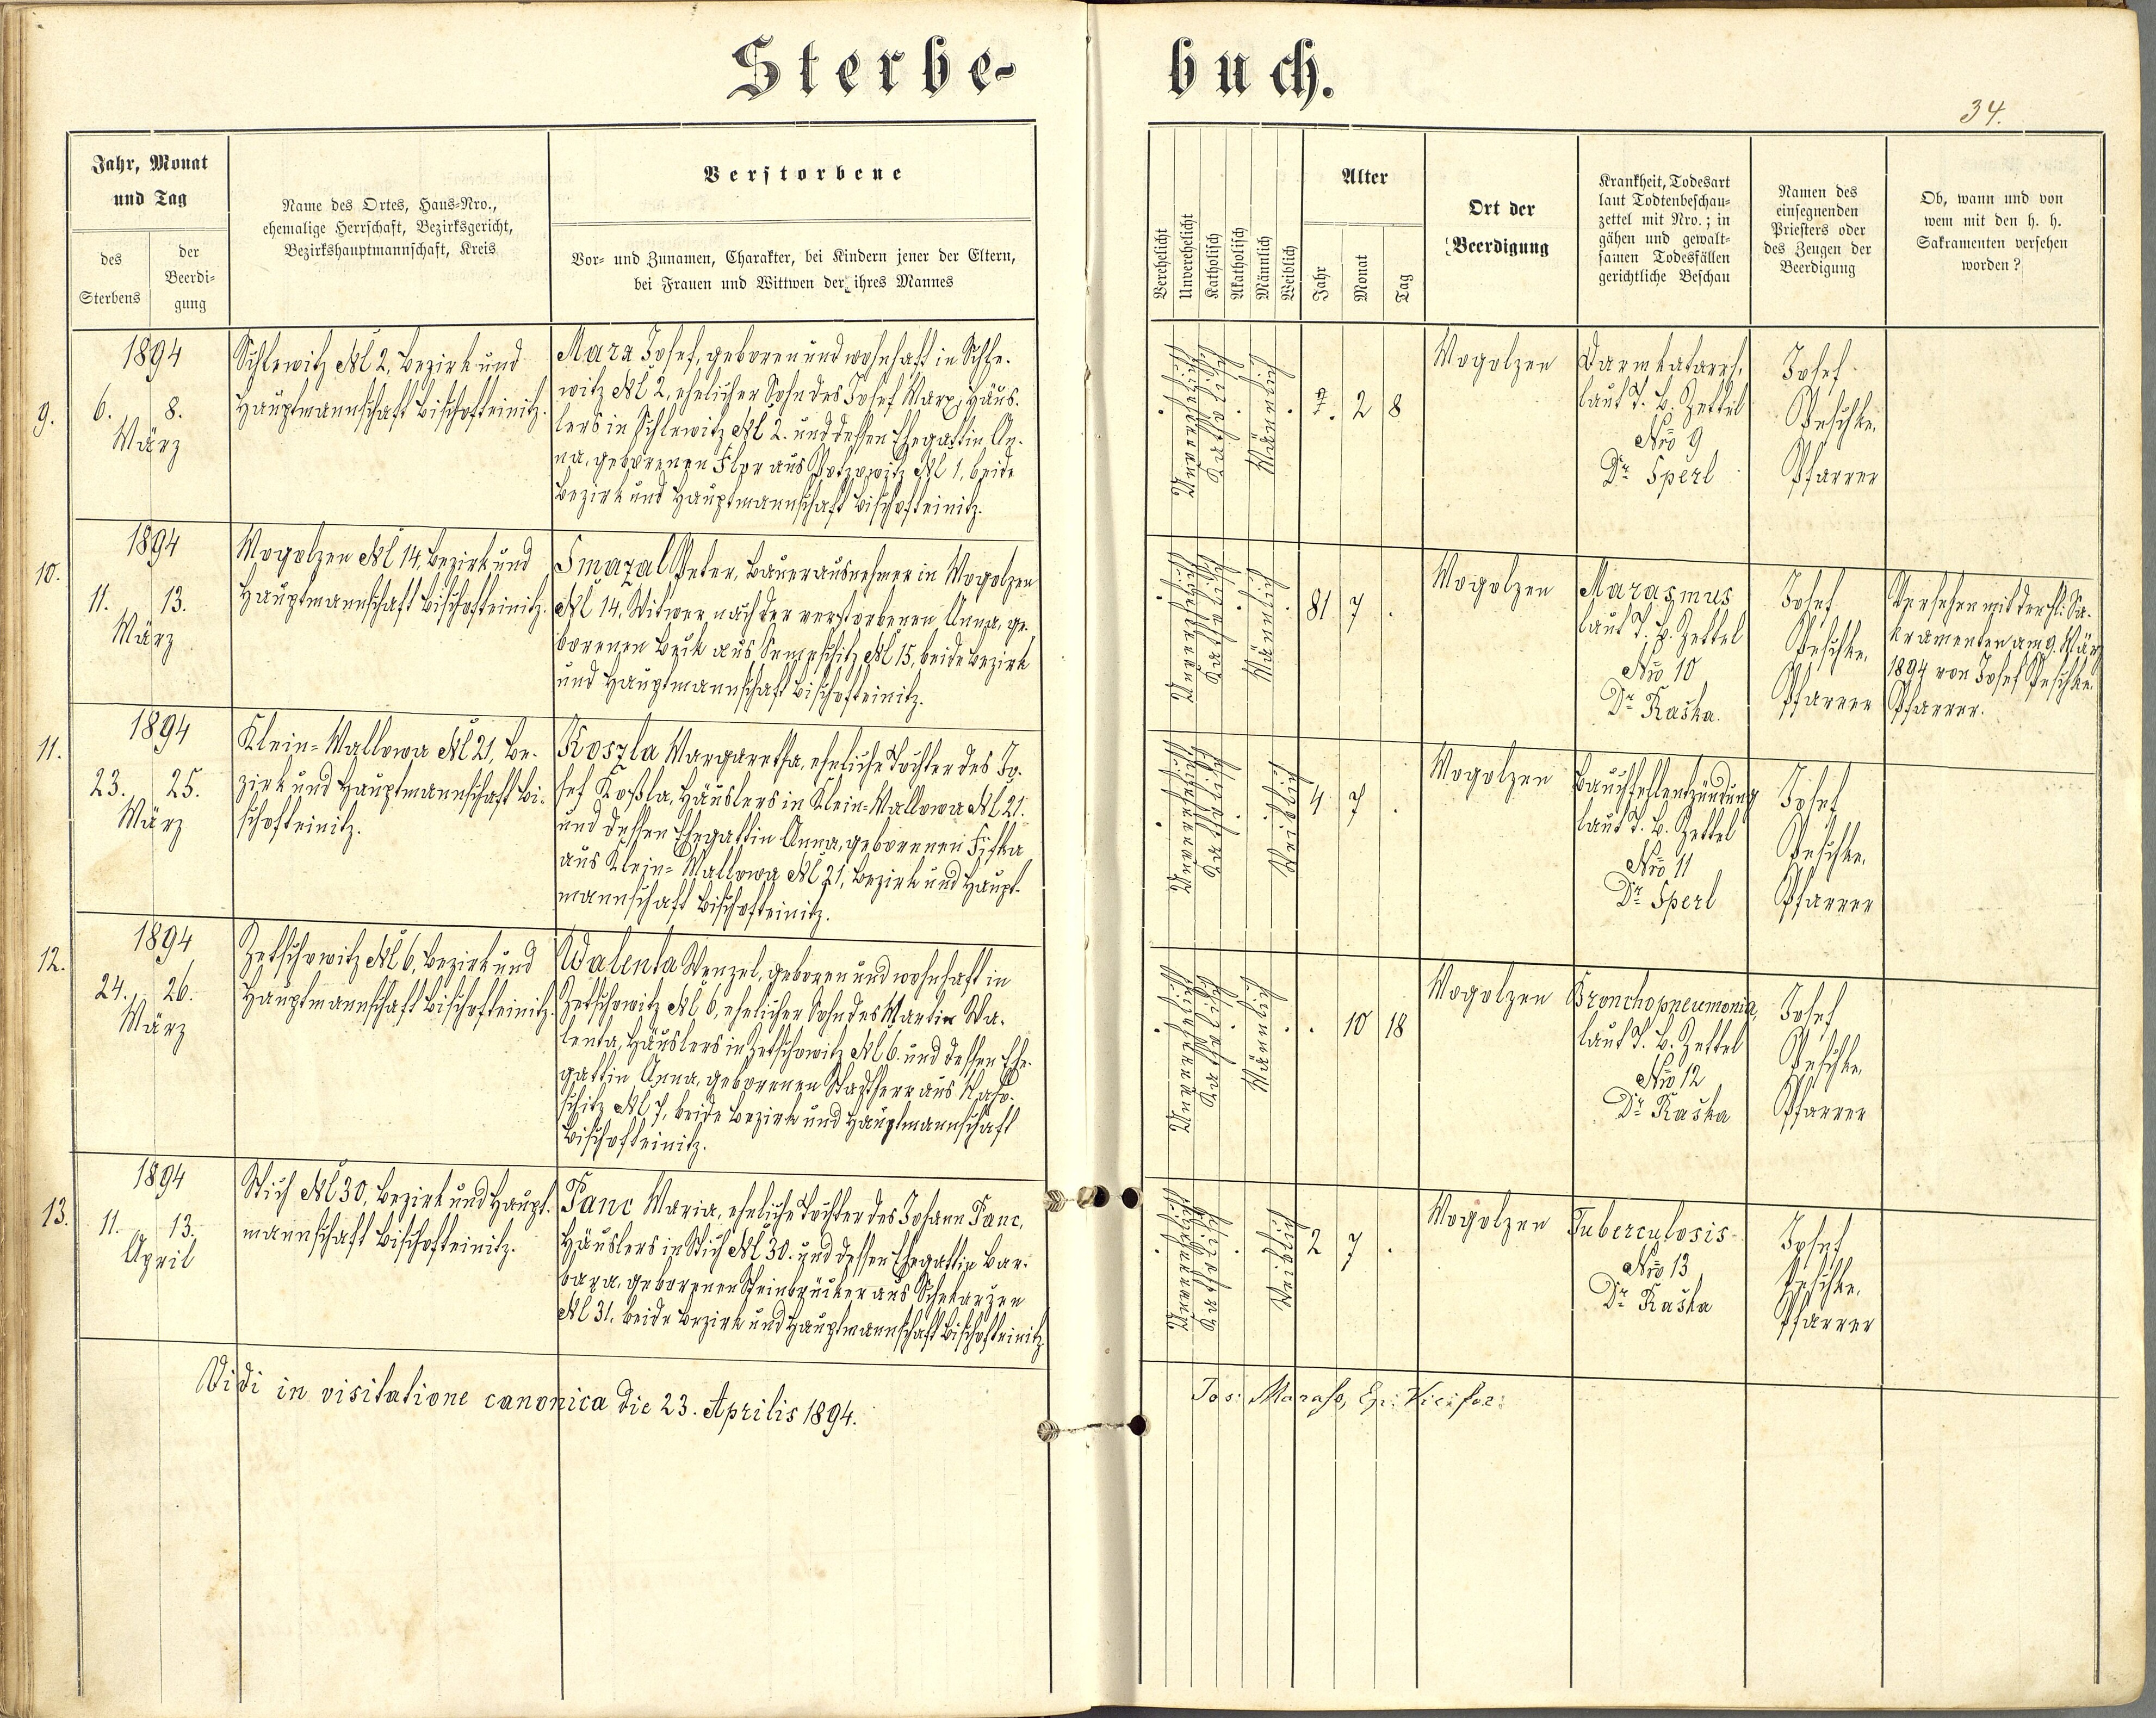 Sterbe-
buch.
34.
Jahr, Monat
und Tag
des
Sterbens
der
Beerdi-
gung
Name des Ortes, Haus-Nro.,
ehemalige Herrschaft, Bezirksgericht,
Bezirkshauptmannschaft, Kreis
Verstorbene
Vor- und Zunamen, Charakter, bei Kindern jener der Eltern,
bei Frauen und Wittwen der ihres Mannes
Verehelicht
Unverehelicht
Katholisch
Akatholisch
Männlich
Weiblich
Alter
Jahr
Monat
Tag
Ort der
Beerdigung
Krankheit, Todesart
laut Todtenbeschau-
zettel mit Nro.; in
gähen und gewalt-
samen Todesfällen
gerichtliche Beschau
Namen des
einsegnenden
Priesters oder
des Zeugen der
Beerdigung
Ob, wann und von
wem mit den h. h.
Sakramenten versehen
worden?
9.
1894
6. 8.
März
Schlewitz № 2, Bezirk und
Hauptmannschaft Bischofteinitz.
Marx Josef, geboren und wohnhaft in Schle-
witz № 2, ehelicher Sohn des Josef Marx, Häus-
lers in Schlewitz № 2. und dessen Ehegattin An-
na, geborenen Flor aus № 1, beide
Bezirk und Hauptmannschaft Bischofteinitz.
Unverehelicht
Katholisch
Männlich
2 8
Wogolzen
Darmkatarrh,
laut T. B. Zettel
Nro 9
Dr Sperl
Josef
Peschke,
Pfarrer
10.
1894
11. 13.
März
Wogolzen № 14, Bezirk und
Hauptmannschaft Bischofteinitz.
Smazal Peter, Bauerausnehmer in Wogolzen
№ 14, Witwer nach der verstorbenen Anna, ge-
borenen Beck aus Semeschitz № 15, beide Bezirk
und Hauptmannschaft Bischofteinitz.
Unverehelicht
Katholisch
Männlich
81 7 .
Wogolzen
Marasmus
laut T. B. Zettel
Nro 10
Dr Kaska.
Josef
Peschke,
Pfarrer
Versehen mit den hl. Sa-
kramenten am 9. März
1894 von Josef Peschke,
Pfarrer.
11.
1894
23. 25.
März
Klein-Mallowa № 21, Be-
zirk und Hauptmannschaft Bi-
schofteinitz.
Koszla Margaretha, eheliche Tochter des Jo-
sef Koßla, Häuslers in Klein-Mallowa № 21.
und dessen Ehegattin Anna, geborenen Fifka
aus Klein-Mallowa № 21, Bezirk und Haupt-
mannschaft Bischofteinitz.
Unverehelicht
Katholisch
Weiblich
4 7 .
Wogolzen
Bauchfellentzündung
laut T. B. Zettel
Nro 11
Dr Sperl
Josef
Peschke,
Pfarrer
12.
1894
24. 26.
März
Zetschowitz № 6, Bezirk und
Hauptmannschaft Bischofteinitz.
Walenta Wenzel, geboren und wohnhaft in
Zetschowitz № 6, ehelicher Sohn des Martin Wa-
lenta, Häuslers in Zetschowitz № 6. und dessen Ehe-
gattin Anna, geborenen Stadtherr aus
№ 7, beide Bezirk und Hauptmannschaft
Bischofteinitz.
Unverehelicht
Katholisch
Männlich
. 10 18
Wogolzen
Bronchopneumonia,
laut T. B. Zettel
Nro 12
Dr Kaska
Josef
Peschke,
Pfarrer
13.
1894
11. 13.
April
Stich № 30, Bezirk und Haupt-
mannschaft Bischofteinitz.
Panc Maria, eheliche Tochter des Johann Panc,
Häuslers in Stich № 30. und dessen Ehegattin Bar-
bara, geborenen Steinbrücker aus Schekarzen
№ 31, beide Bezirk und Hauptmannschaft Bischofteinitz.
Unverehelicht
Katholisch
Weiblich
2 7 .
Wogolzen
Tuberculosis
Nro 13
Dr Kaska
Josef
Peschke,
Pfarrer
Vidi in visitatione canonica die 23. Aprilis 1894.
Jos: